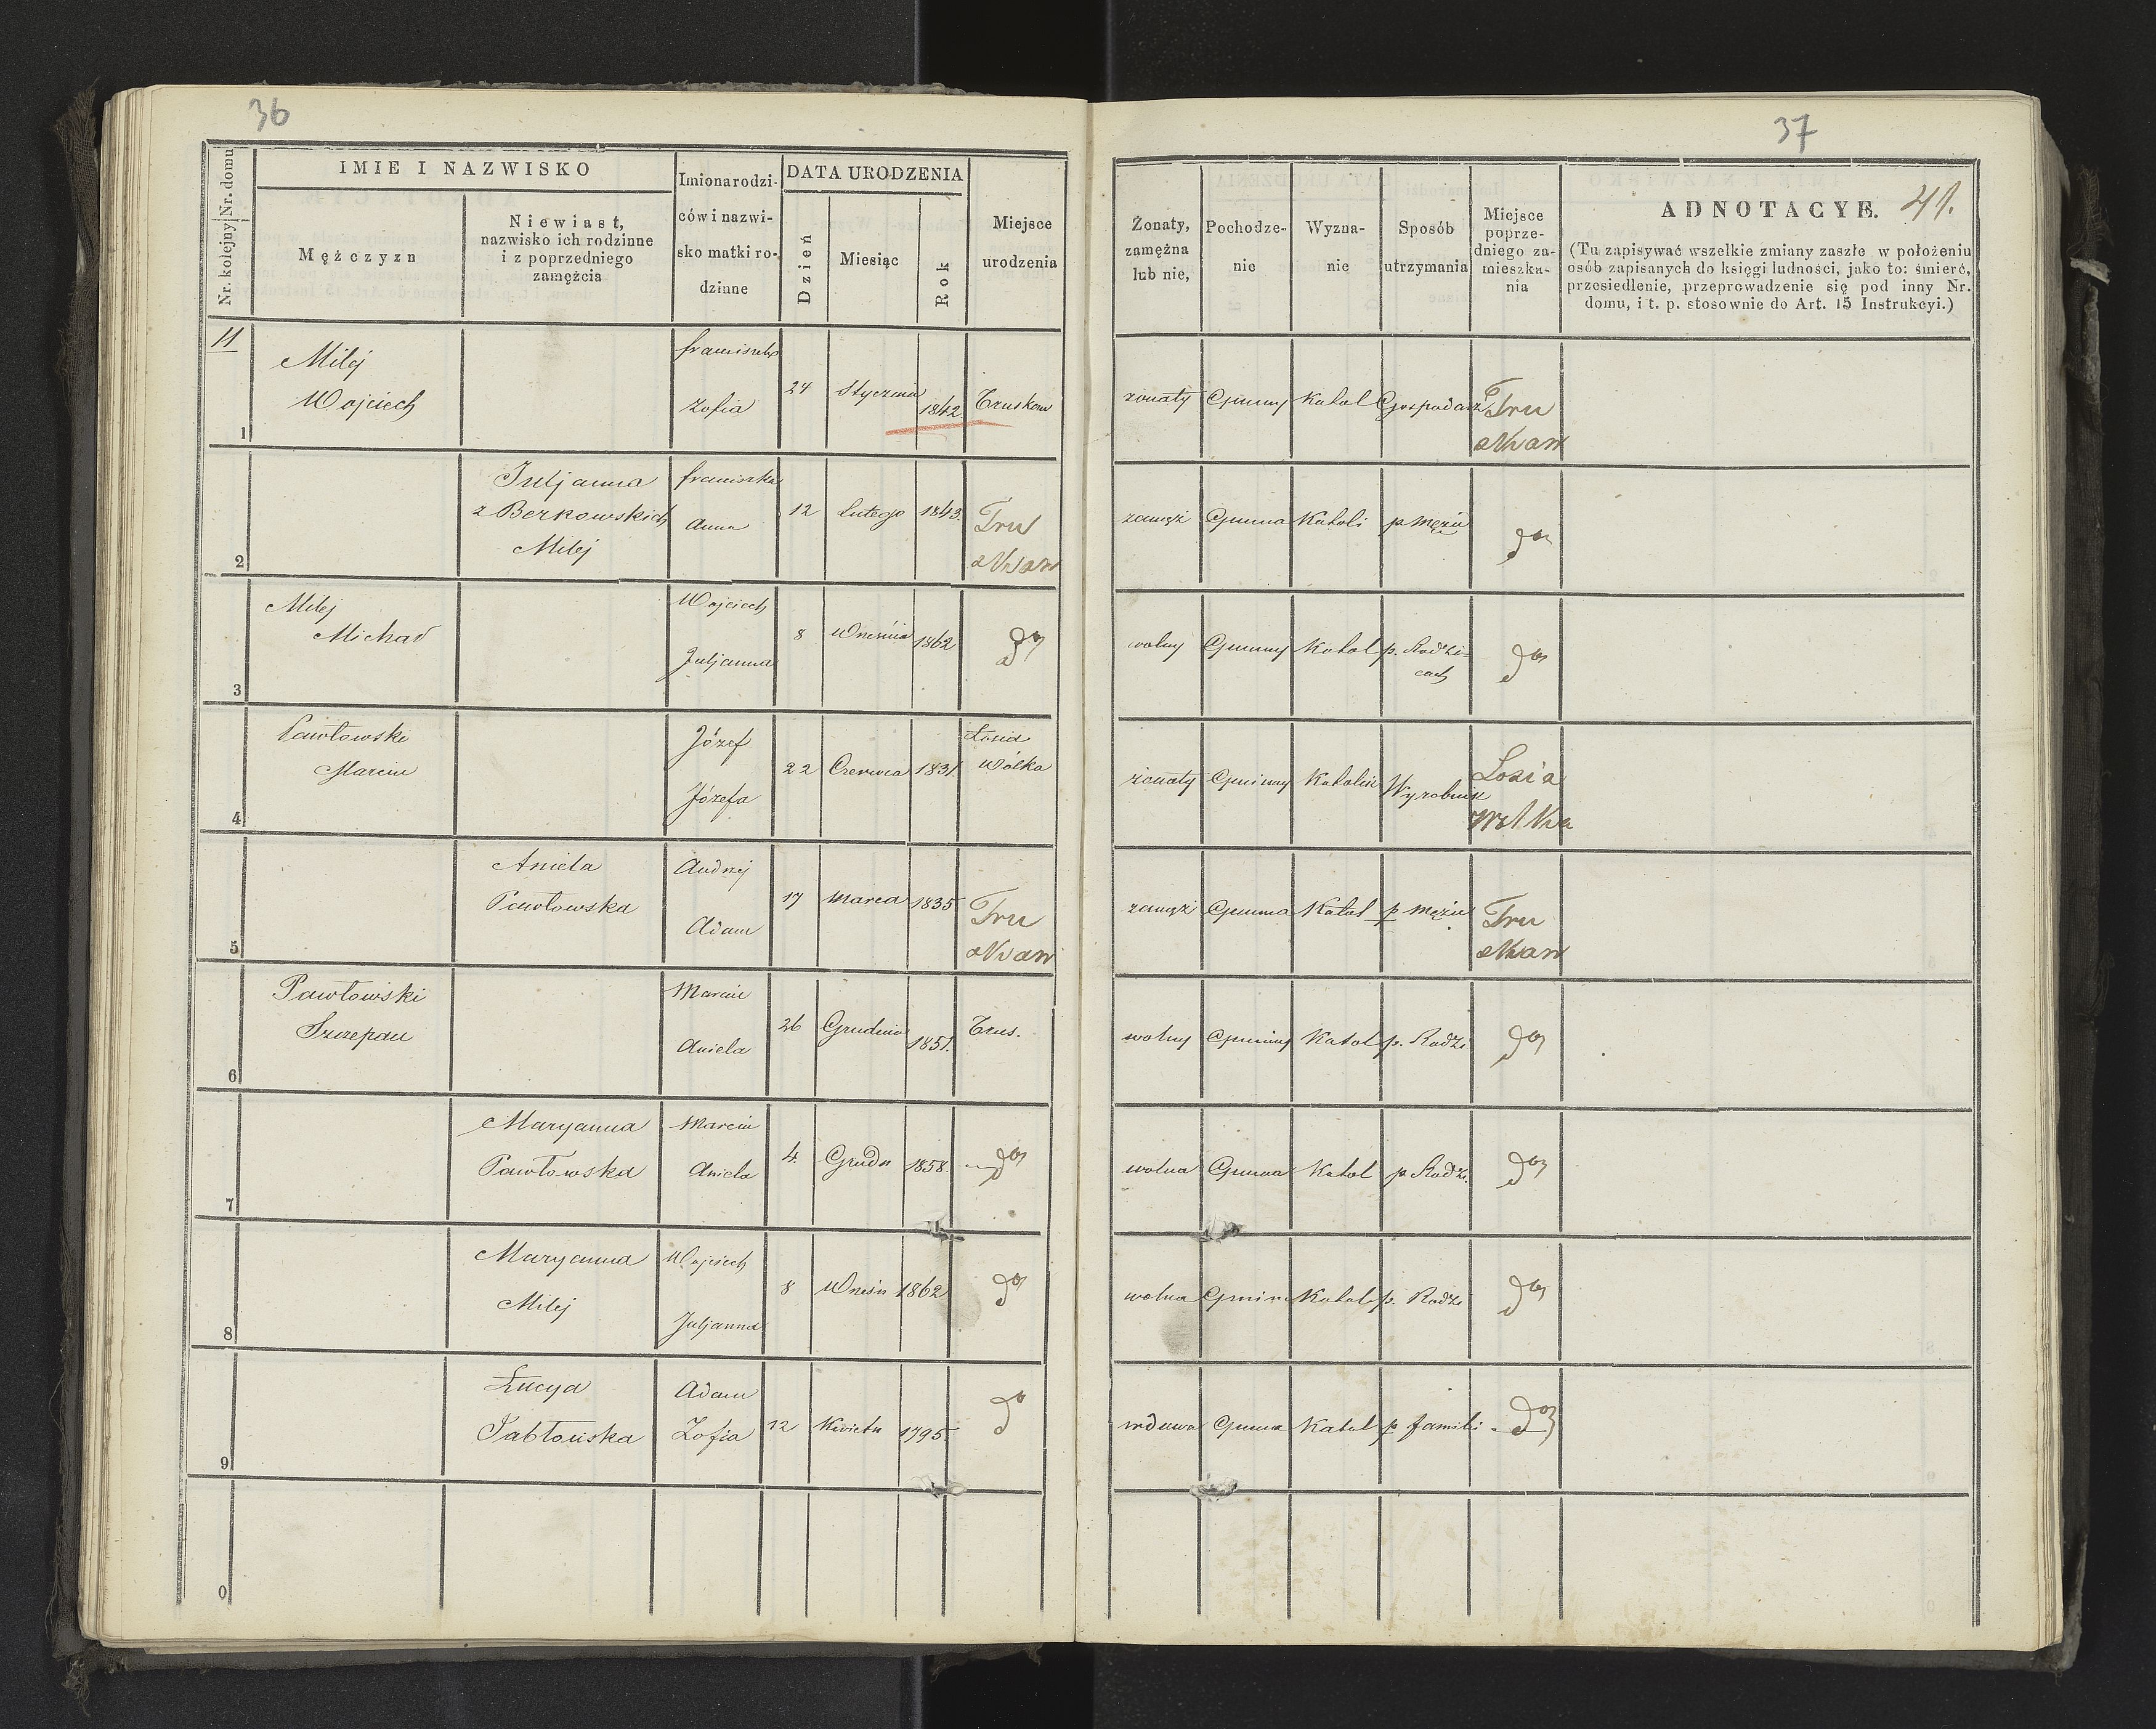 36
Nr. kolejny Nr. domu
IMIE I NAZWISKO
Mężczyzn
Niewiast,
nazwisko ich rodzinne
i z poprzedniego
zamężcia
Imiona rodzi-
ców i nazwi-
sko matki ro-
dzinne
DATA URODZENIA
Dzień
Miesiąc
Rok
Miejsce
urodzenia
11
1
Milej
Wojciech
Zofia
24
Stycznia
1842
2
Juljanna
z Berkowskich
Milej
Franciszka
Anna
12
Lutego
1843.
Tru
skaw
3
Milej
Michał
Wojciech
Juljanna
8
1862
do
4
Pawłowski
Marcin
Józef
Józefa
22
Czerwca
1831.
Łosia
Wólka
5
Aniela
Pawłowska
Andrzej
Adam
17
Marca
1835
Tru
skaw
6
Pawłowski
Szczepan
Marcin
Aniela
26
Grudnia
1851.
Trus.
7
Maryanna
Pawłowska
Marcin
Aniela
4.
Grudn
1858.
do
8
Maryanna
Milej
Wojciech
Juljanna
8
Wrześn
1862
do
9
Łucya
Jabłońska
Adam
Zofia
12
Kwietn
1795.
do
0
37
Żonaty,
zamężna
lub nie,
Pochodze-
nie
Wyzna-
nie
Sposób
utrzymania
Miejsce
poprze-
dniego za-
mieszka-
nia
ADNOTACYE. 41.
(Tu zapisywać wszelkie zmiany zaszłe w położeniu
osób zapisanych do księgi ludności, jako to: śmierć,
przesiedlenie, przeprowadzenie się pod inny Nr.
domu, i t. p. stosownie do Art. 15 Instrukcyi.)
żonaty
Gminny
Katol
Gospodarz
Tru
skaw
zamęż
Gminna
Katoli
p mężu
do
wolny
Gminny
Katol
p. Rodzi-
cach
do
żonaty
Gminny
Katolik
Wyrobnik
Łosia
wolka
zamęż
Gminna
Katol
p mężu
Tru
skaw
wolny
Gminny
Katol
p. Rodzi
do
wolna
Gminna
Katol
p Rodz.
do
wolna
Gmin
Katol
p. Rodzi
do
wdowa
Gminna
Katol
p famili
do